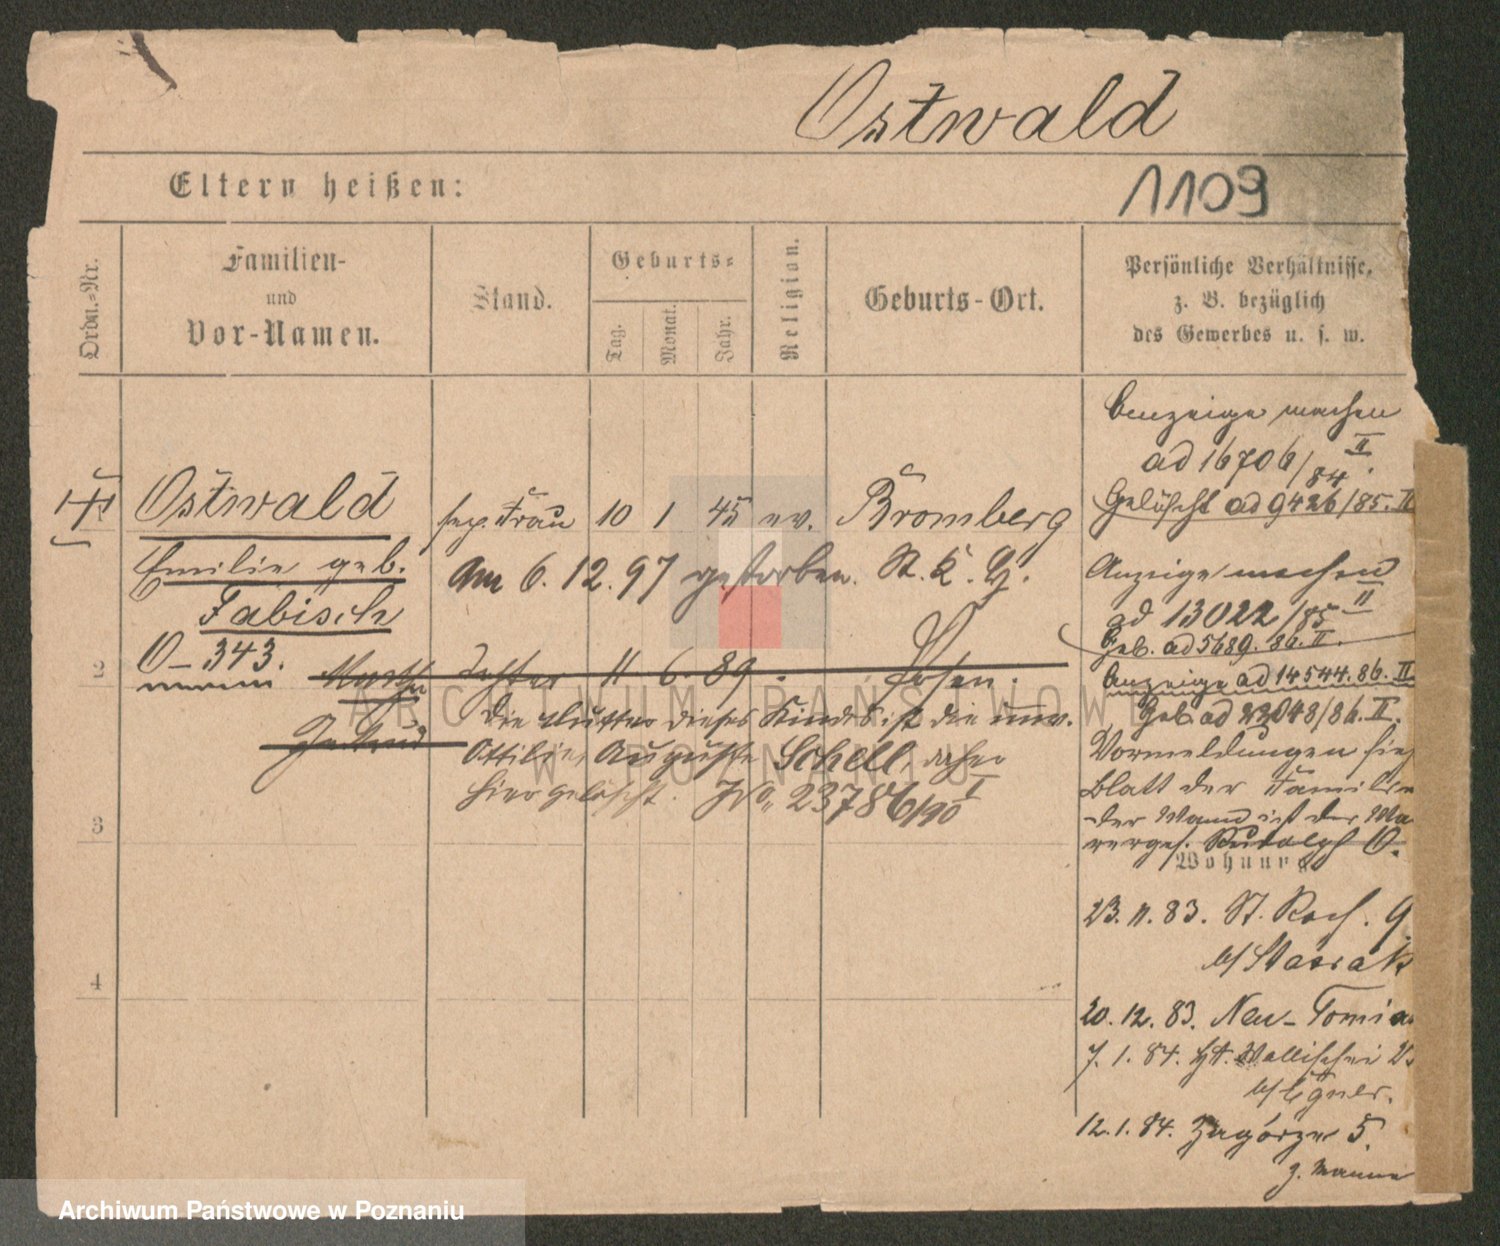 Ostwald
Eltern heißen:
1109
Ordn.=Nr.
Familien-
und
Vor-Namen.
Stand.
Geburts=
Tag.
Monat.
Jahr.
Religion.
Geburts-Ort.
Persönliche Verhältnisse,
z. B. bezüglich
des Gewerbes u. s. w.
Anzeige machen
ad 16706/84. II
Gelöscht ad 9426/85. II
1
Ostwald
sep. Frau
10
1
45
ev.
Bromberg
Emilie geb.
Fabisch
Am 6. 12. 97 gestorben. St. K. G.
Anzeige machen
ad 13022/85 II
Geb. ad 5689. 86. II.
O-343.
2
Martha
Tochter
11
6
89
Posen.
Anzeige ad 14544. 86. II.
Gertrud
Die Mutter dieses Kindes ist die unv.
Ottilie, Auguste Schell, daher
hier gelöscht. No. 23786/90 I
Geb ad 23048/86. II.
Vormeldungen
Blatt der Familie
der Mann ist der
Rudolph O.
3
Wohnung
23. 11. 83. St. Roch. 9.
b/ Stasiak
4
20. 12. 83. Neu-Tomi
7. 1. 84. Wallischei
b/ Egner.
12. 1. 84. Zagórze 5.
ARCHIWUM PAŃSTWOWE
W POZNANIU
Archiwum Państwowe w Poznaniu